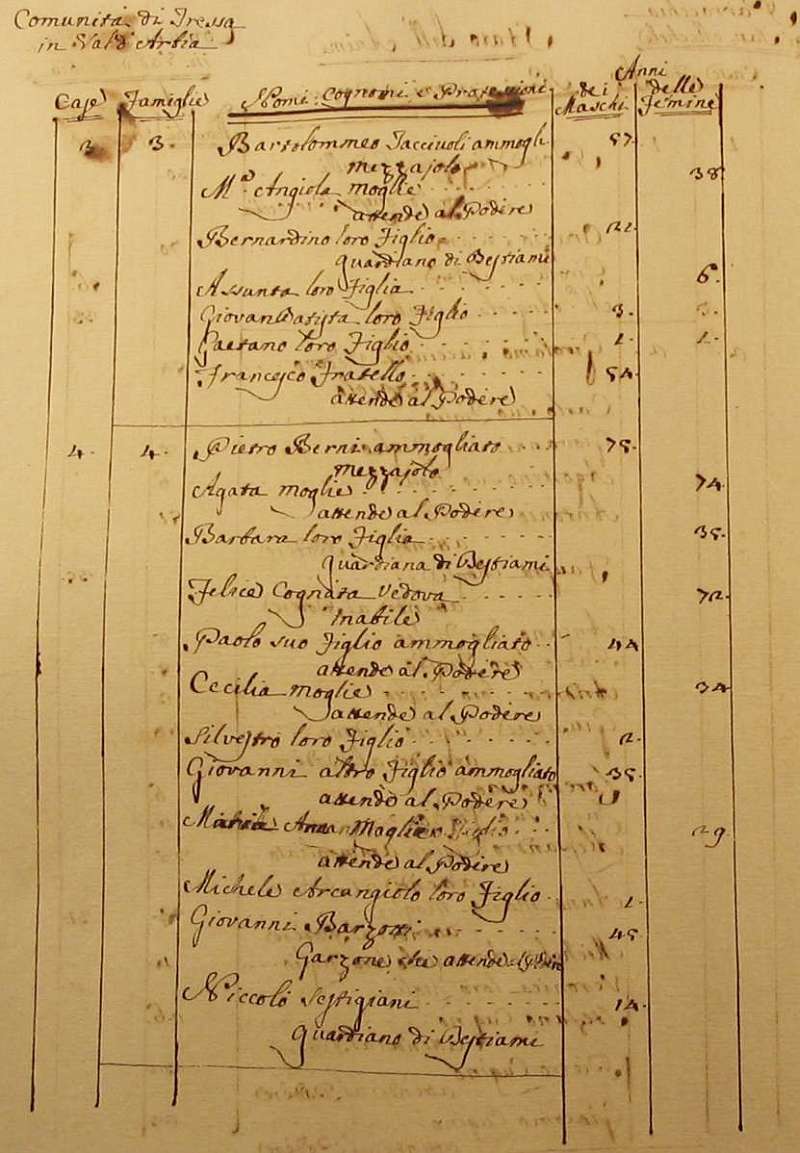 Comunità di Tressa
in Val d'Arbia
Case Famiglie Nomi Cognomi e Professioni Anni
dei Maschi delle Femine
3. 3. Bartolommeo ammogli 57
mezzajolo
M.ª Angiola moglie 38
attende al Podere
Bernardino loro Figlio
Guardiano di Bestiami
Assunta loro Figlia 6.
Giovan Batista loro Figlio 3.
Gaetano loro Figlio 1.
Francesco Fratello 54
attende al Podere
4. 4. Pietro Berni ammogliato 75.
mezzajolo
Agata moglie 74
attende al Podere
Barbara loro Figlia 35.
Guardiana di Bestiami
Felice Cognata Vedova 72.
Inabile
Paolo suo Figlio ammogliato 44
attende al Podere
Cecilia moglie 34
attende al Podere
Silvestro loro Figlio 2.
Giovanni altro Figlio ammogliato 35
attende al Podere
Maria Anna Moglie 29
attende al Podere
Michele Arcangiolo loro Figlio 1.
Giovanni 45
Garzone che attende
Niccolò Sestigiani 14.
Guardiano di Bestiami